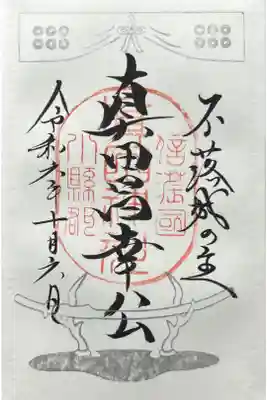 不落城の主
真田昌幸公
令和六年十月六日
信濃国
眞田神社
小縣郡